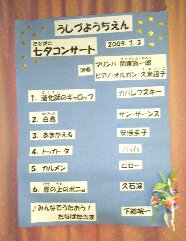 うしづようちえん
たなばた
七夕コンサート 2009.7.3
演奏 マリンバ
ピアノ・オルガン:久米詔子
1. 道化師のギャロップ カバレフスキー
2. 白鳥 サン・サーンス
3. あきかえる
4. トッカータ バッハ
5. カルメン ビゼー
6. 崖の上のポニョ 久石譲
♪みんなでうたおう! 下総皖一
たなばたさま